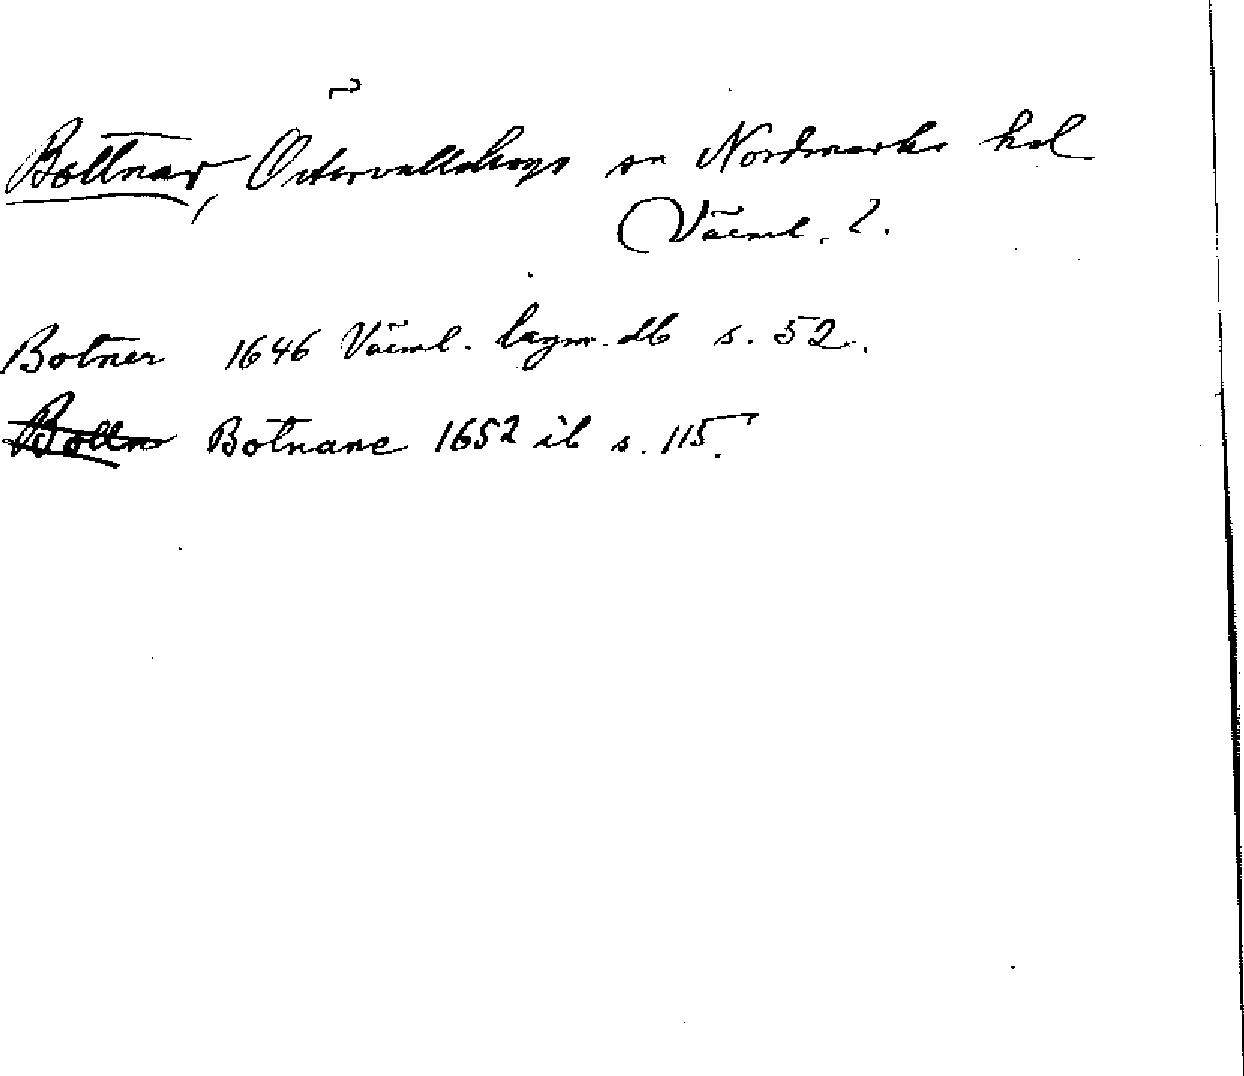 Bottnar, Östervallskogs sn Nordmarks hd
Värml. l.
Botner 1646 Värml. lagm. db s. 52.
Bottn Botnane 1652 ib s. 115.